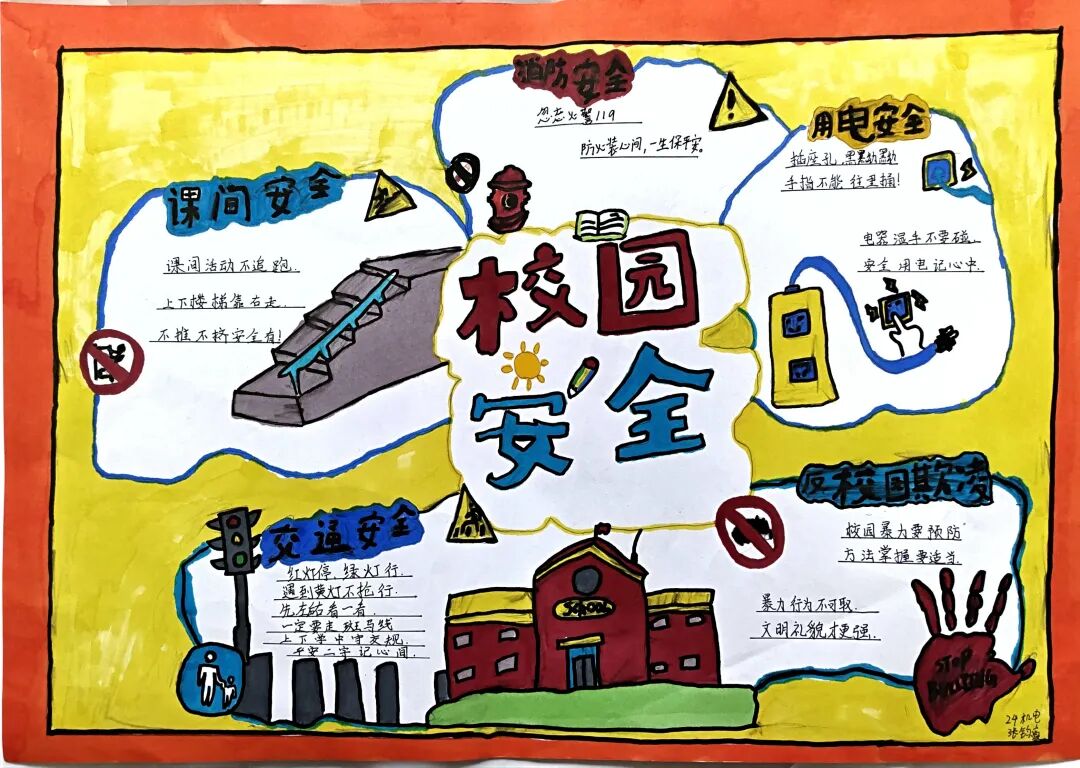 消防安全
忽忘火警119
防火装心间,一生保平安。
用电安全
插座孔,黑黝黝
手指不能往里捅!
电器湿手不要碰.
安全用电记心中.
课间安全
课间活动不追跑.
上下楼梯靠右走.
不推不挤安全有!
校园
安全
交通安全
红灯停.绿灯行.
遇到黄灯不抢行.
先左右看一看.
一定要走斑马线
上下学中守交规.
平安二字记心间.
SCHOOL
反校园欺凌
校园暴力要预防
方法掌握要适当.
暴力行为不可取.
文明礼貌才更强.
STOP
24机电